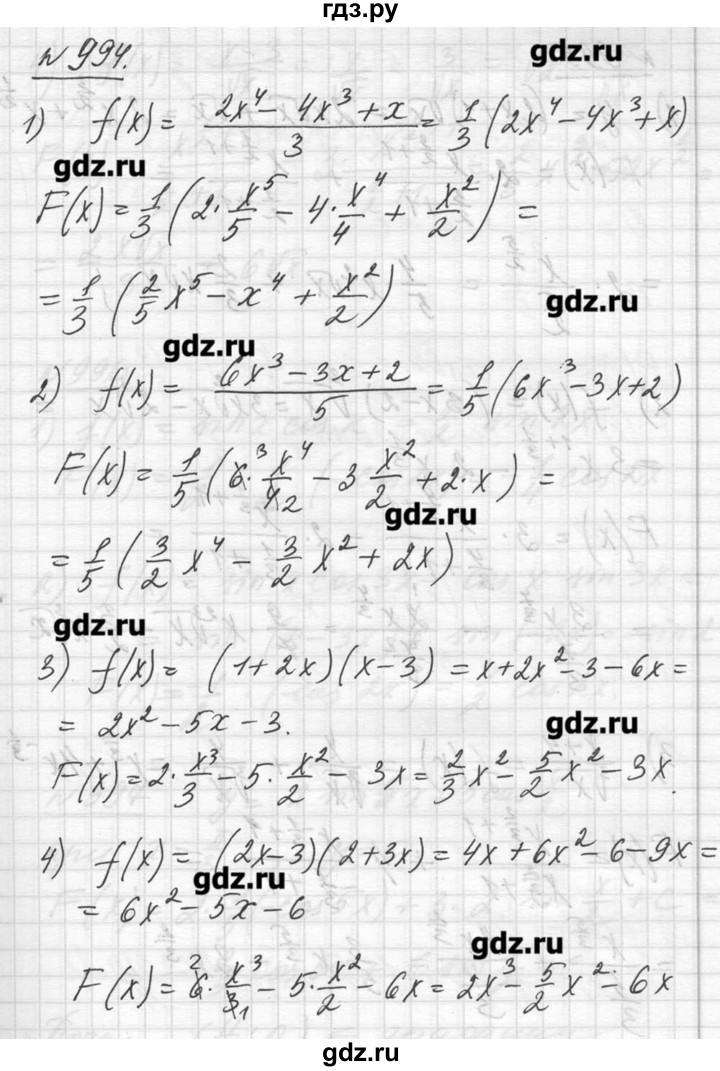 гдз.ру
№ 994.
gdz.ru
1) f(x) = (2x⁴ - 4x³ + x)/3 = 1/3 (2x⁴ - 4x³ + x)
gdz.ru
F(x) = 1/3 (2 · x⁵/5 - 4 · x⁴/4 + x²/2) =
= 1/3 (2/5 x⁵ - x⁴ + x²/2)
gdz.ru
gdz.ru
2) f(x) = (6x³ - 3x + 2)/5 = 1/5 (6x³ - 3x + 2)
F(x) = 1/5 (6 ³ · x⁴/4 2 - 3 x²/2 + 2 · x) =
gdz.ru
= 1/5 (3/2 x⁴ - 3/2 x² + 2x)
gdz.ru
3) f(x) = (1 + 2x)(x - 3) = x + 2x² - 3 - 6x =
= 2x² - 5x - 3.
gdz.ru
F(x) = 2 · x³/3 - 5 · x²/2 - 3x = 2/3 x² - 5/2 x² - 3x.
4) f(x) = (2x - 3)(2 + 3x) = 4x + 6x² - 6 - 9x =
gdz.ru
= 6x² - 5x - 6
gdz.ru
F(x) = ² 6 · x³/3 1 - 5 · x²/2 - 6x = 2x³ - 5/2 x² - 6x
gdz.ru